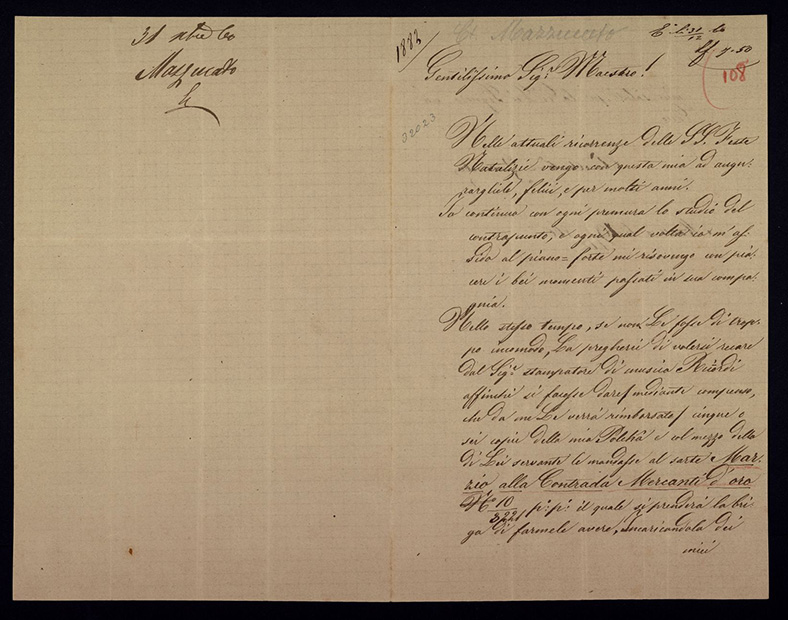 31 xbre 60
Mazzucato
1882
E. Mazzucato
E' li 31/12 60
108
Gentilissimo Sig.r Maestro!
02023
Nelle attuali ricorrenze delle S.S. Feste
Natalizie vengo con questa mia ad augu-
rargliele, felici, e per molti anni.
Io continuo con ogni premura lo studio del
contrapunto, e ogni qual volta io m'as-
sido al piano=forte mi risovengo con pia-
cere i bei momenti passati in sua compa-
gnia.
Nello stesso tempo, se non Le fosse di trop-
po incomodo, La pregherei di volersi recare
dal Sig.r stampatore di musica Ricordi
affinchè si facesse dare/mediante compenso,
che da me Le verrà rimborsato/ cinque o
sei copie della mia Polchà e col mezzo della
di Lei servente le mandasse al sarte Mar-
zio alla Contrada Mercanti d'oro
N.o 10
322/ p: p: il quale si prenderà la bri-
ga di farmele avere, Incaricandola dei
miei